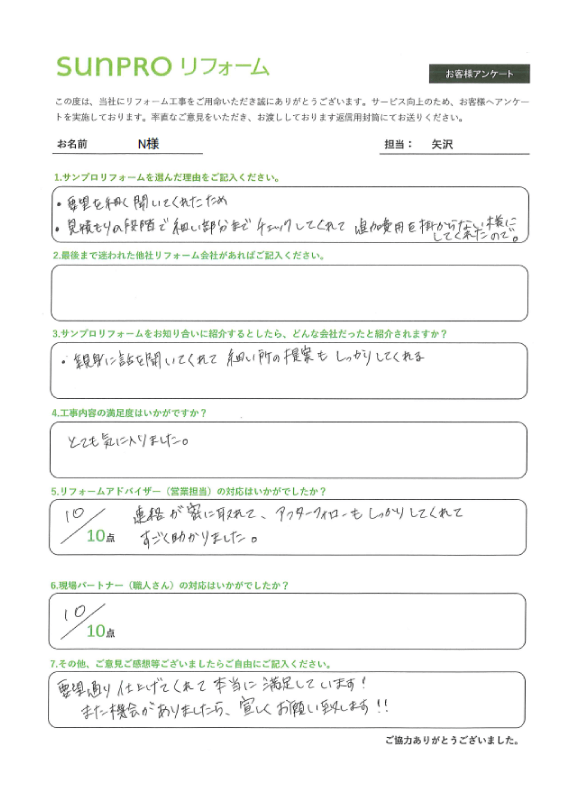 SUNPRO リフォーム
お客様アンケート
この度は、当社にリフォーム工事をご用命いただき誠にありがとうございます。サービス向上のため、お客様へアンケー
トを実施しております。率直なご意見をいただき、お渡ししております返信用封筒にてお送りください。
お名前 N様 担当： 矢沢
1.サンプロリフォームを選んだ理由をご記入ください。
・要望を細く聞いてくれたため
・見積もりの段階で細い部分までチェックしてくれて 追加費用を掛からない様に
してくれたので。
2.最後まで迷われた他社リフォーム会社があればご記入ください。
3.サンプロリフォームをお知り合いに紹介するとしたら、どんな会社だったと紹介されますか？
・親身に話を聞いてくれて 細い所の提案も しっかりしてくれる
4.工事内容の満足度はいかがですか？
とても気に入りました。
5.リフォームアドバイザー（営業担当）の対応はいかがでしたか？
10／10点 連絡が密に取れて、アフターフォローもしっかりしてくれて
すごく助かりました。
6.現場パートナー（職人さん）の対応はいかがでしたか？
10／10点
7.その他、ご意見ご感想等ございましたらご自由にご記入ください。
要望通り仕上げてくれて本当に満足しています！
また機会がありましたら、宜しくお願い致します！！
ご協力ありがとうございました。